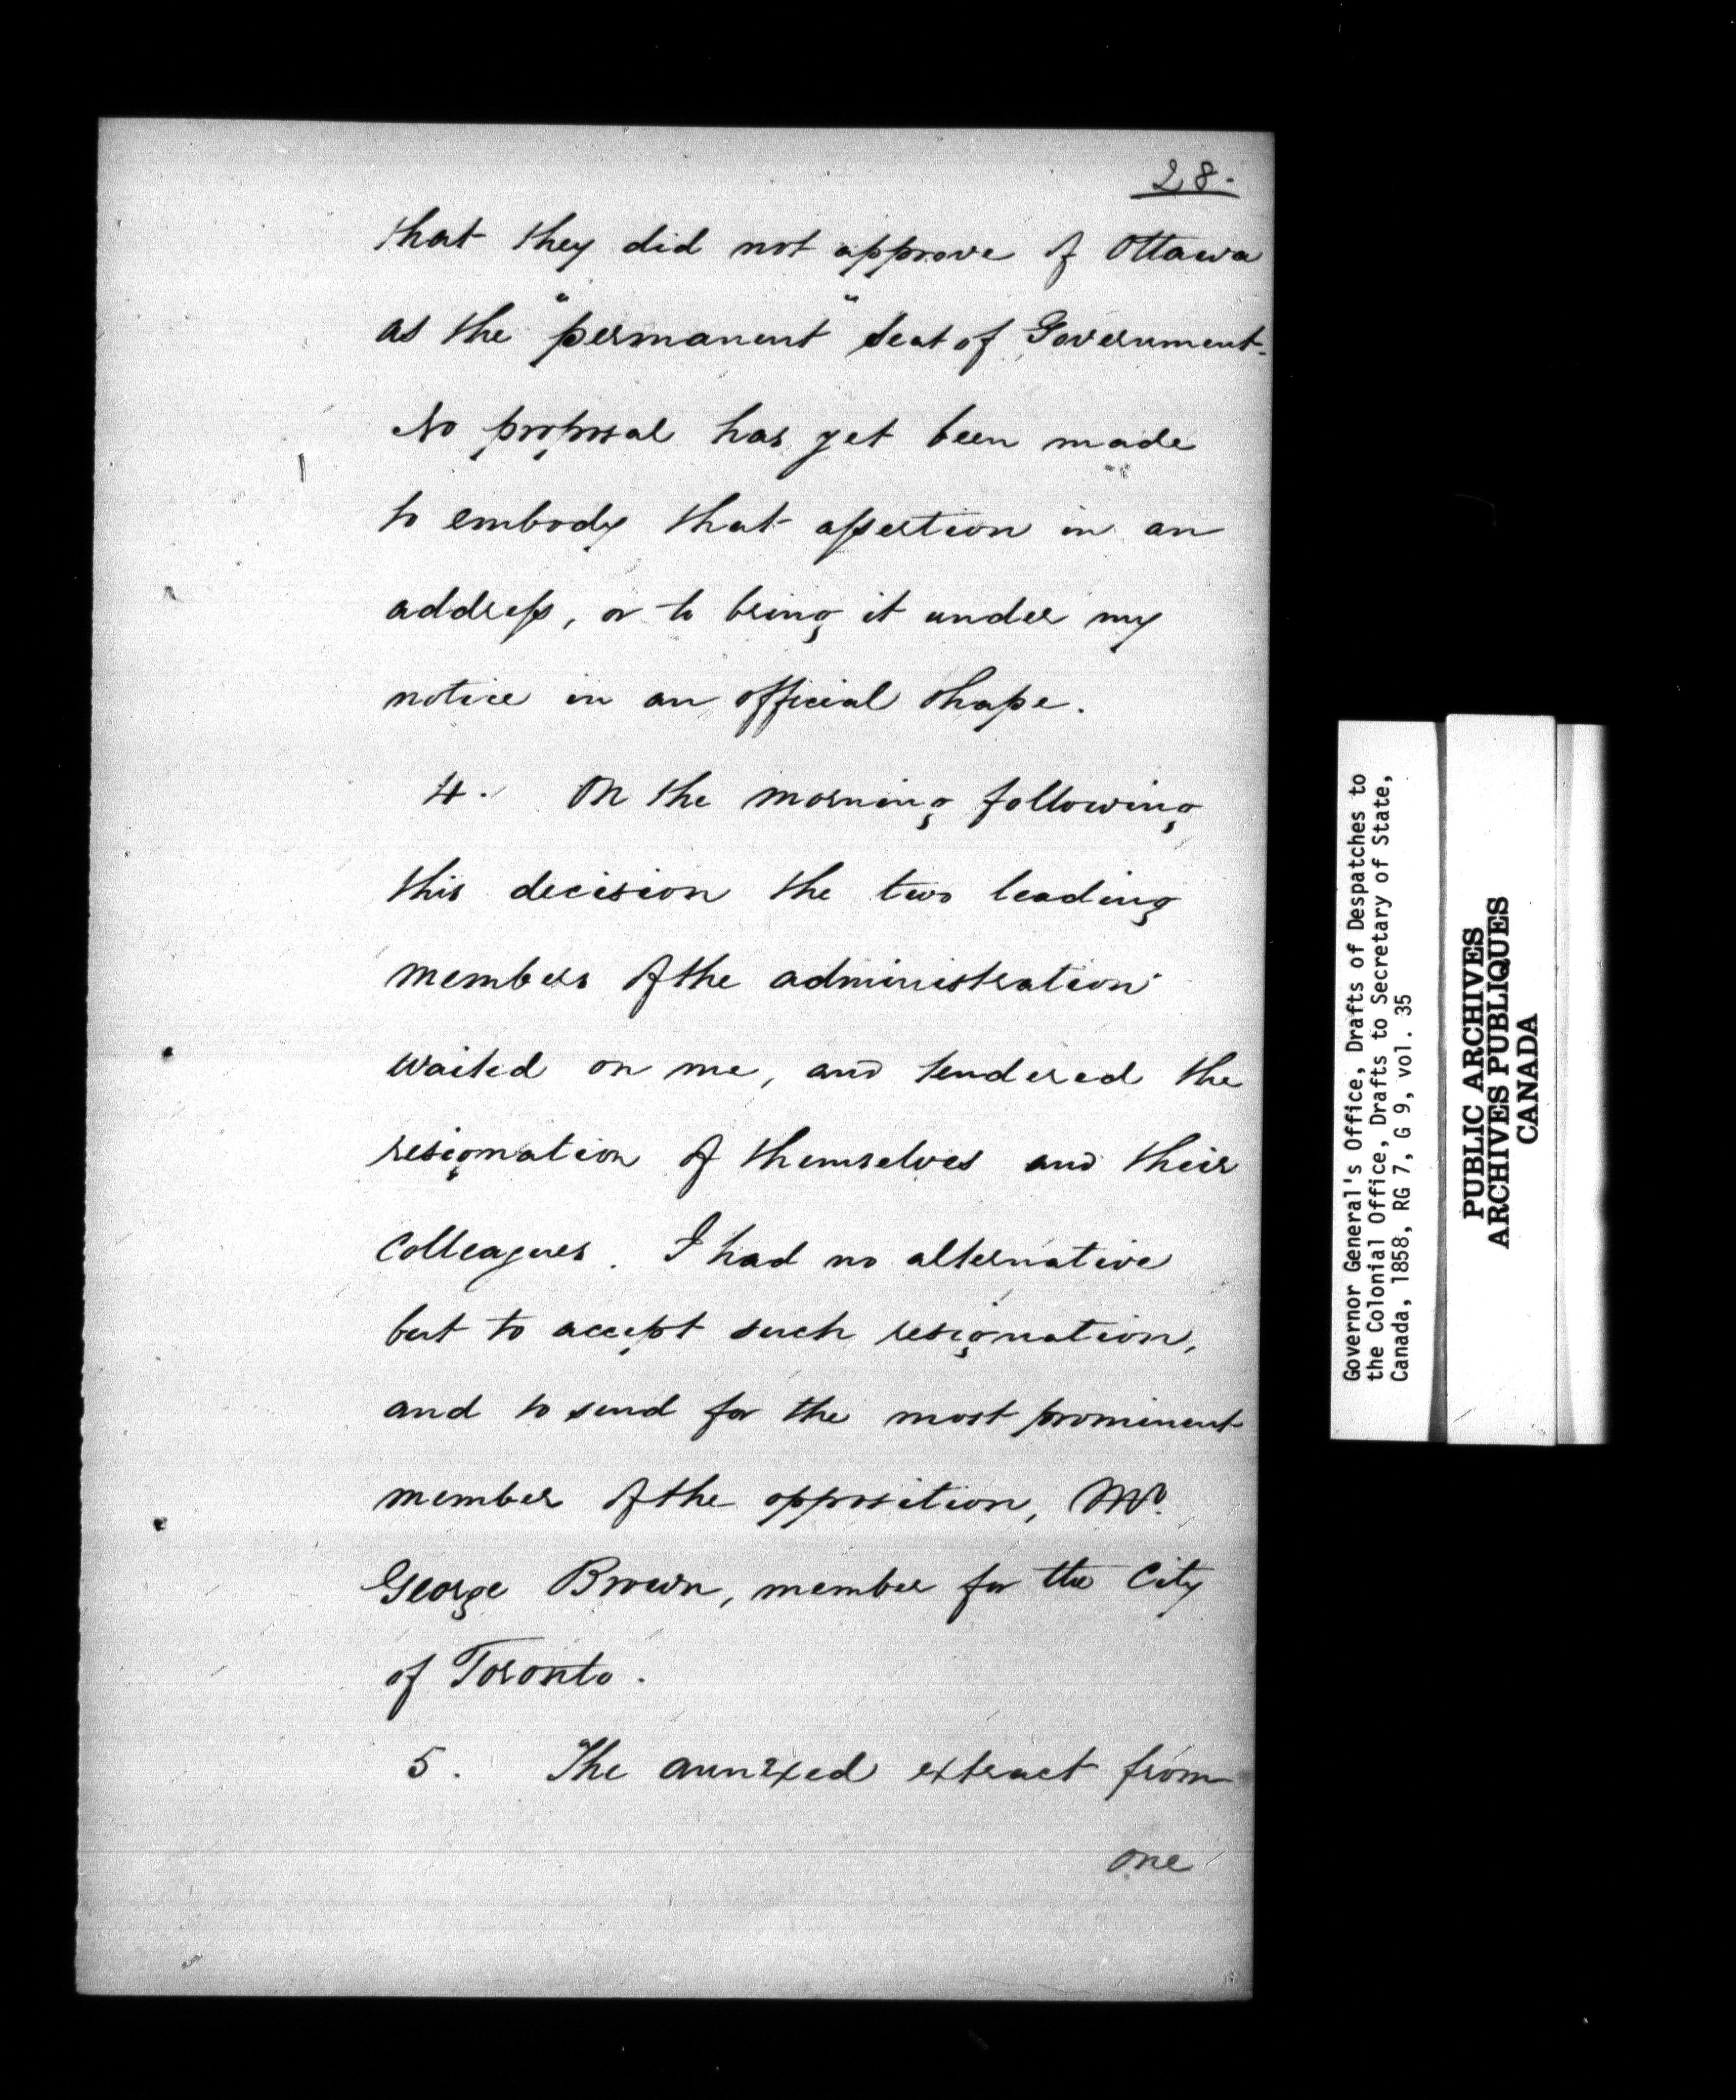 28.
that they did not approve of Ottawa
as the "permanent" Seat of Government.
No proposal has yet been made
to embody that assertion in an
address, or to bring it under my
notice in an official shape.
4. On the morning following
this decision the two leading
members of the administration
waited on me, and tendered the
resignation of themselves and their
Colleagues. I had no alternative
but to accept such resignation,
and to send for the most prominent
member of the opposition, Mr.
George Brown, member for the City
of Toronto.
5. The annexed extract from
one
Governor General's Office, Drafts of Despatches to
the Colonial Office, Drafts to Secretary of State,
Canada, 1858, RG 7, G 9, vol. 35
PUBLIC ARCHIVES
ARCHIVES PUBLIQUES
CANADA